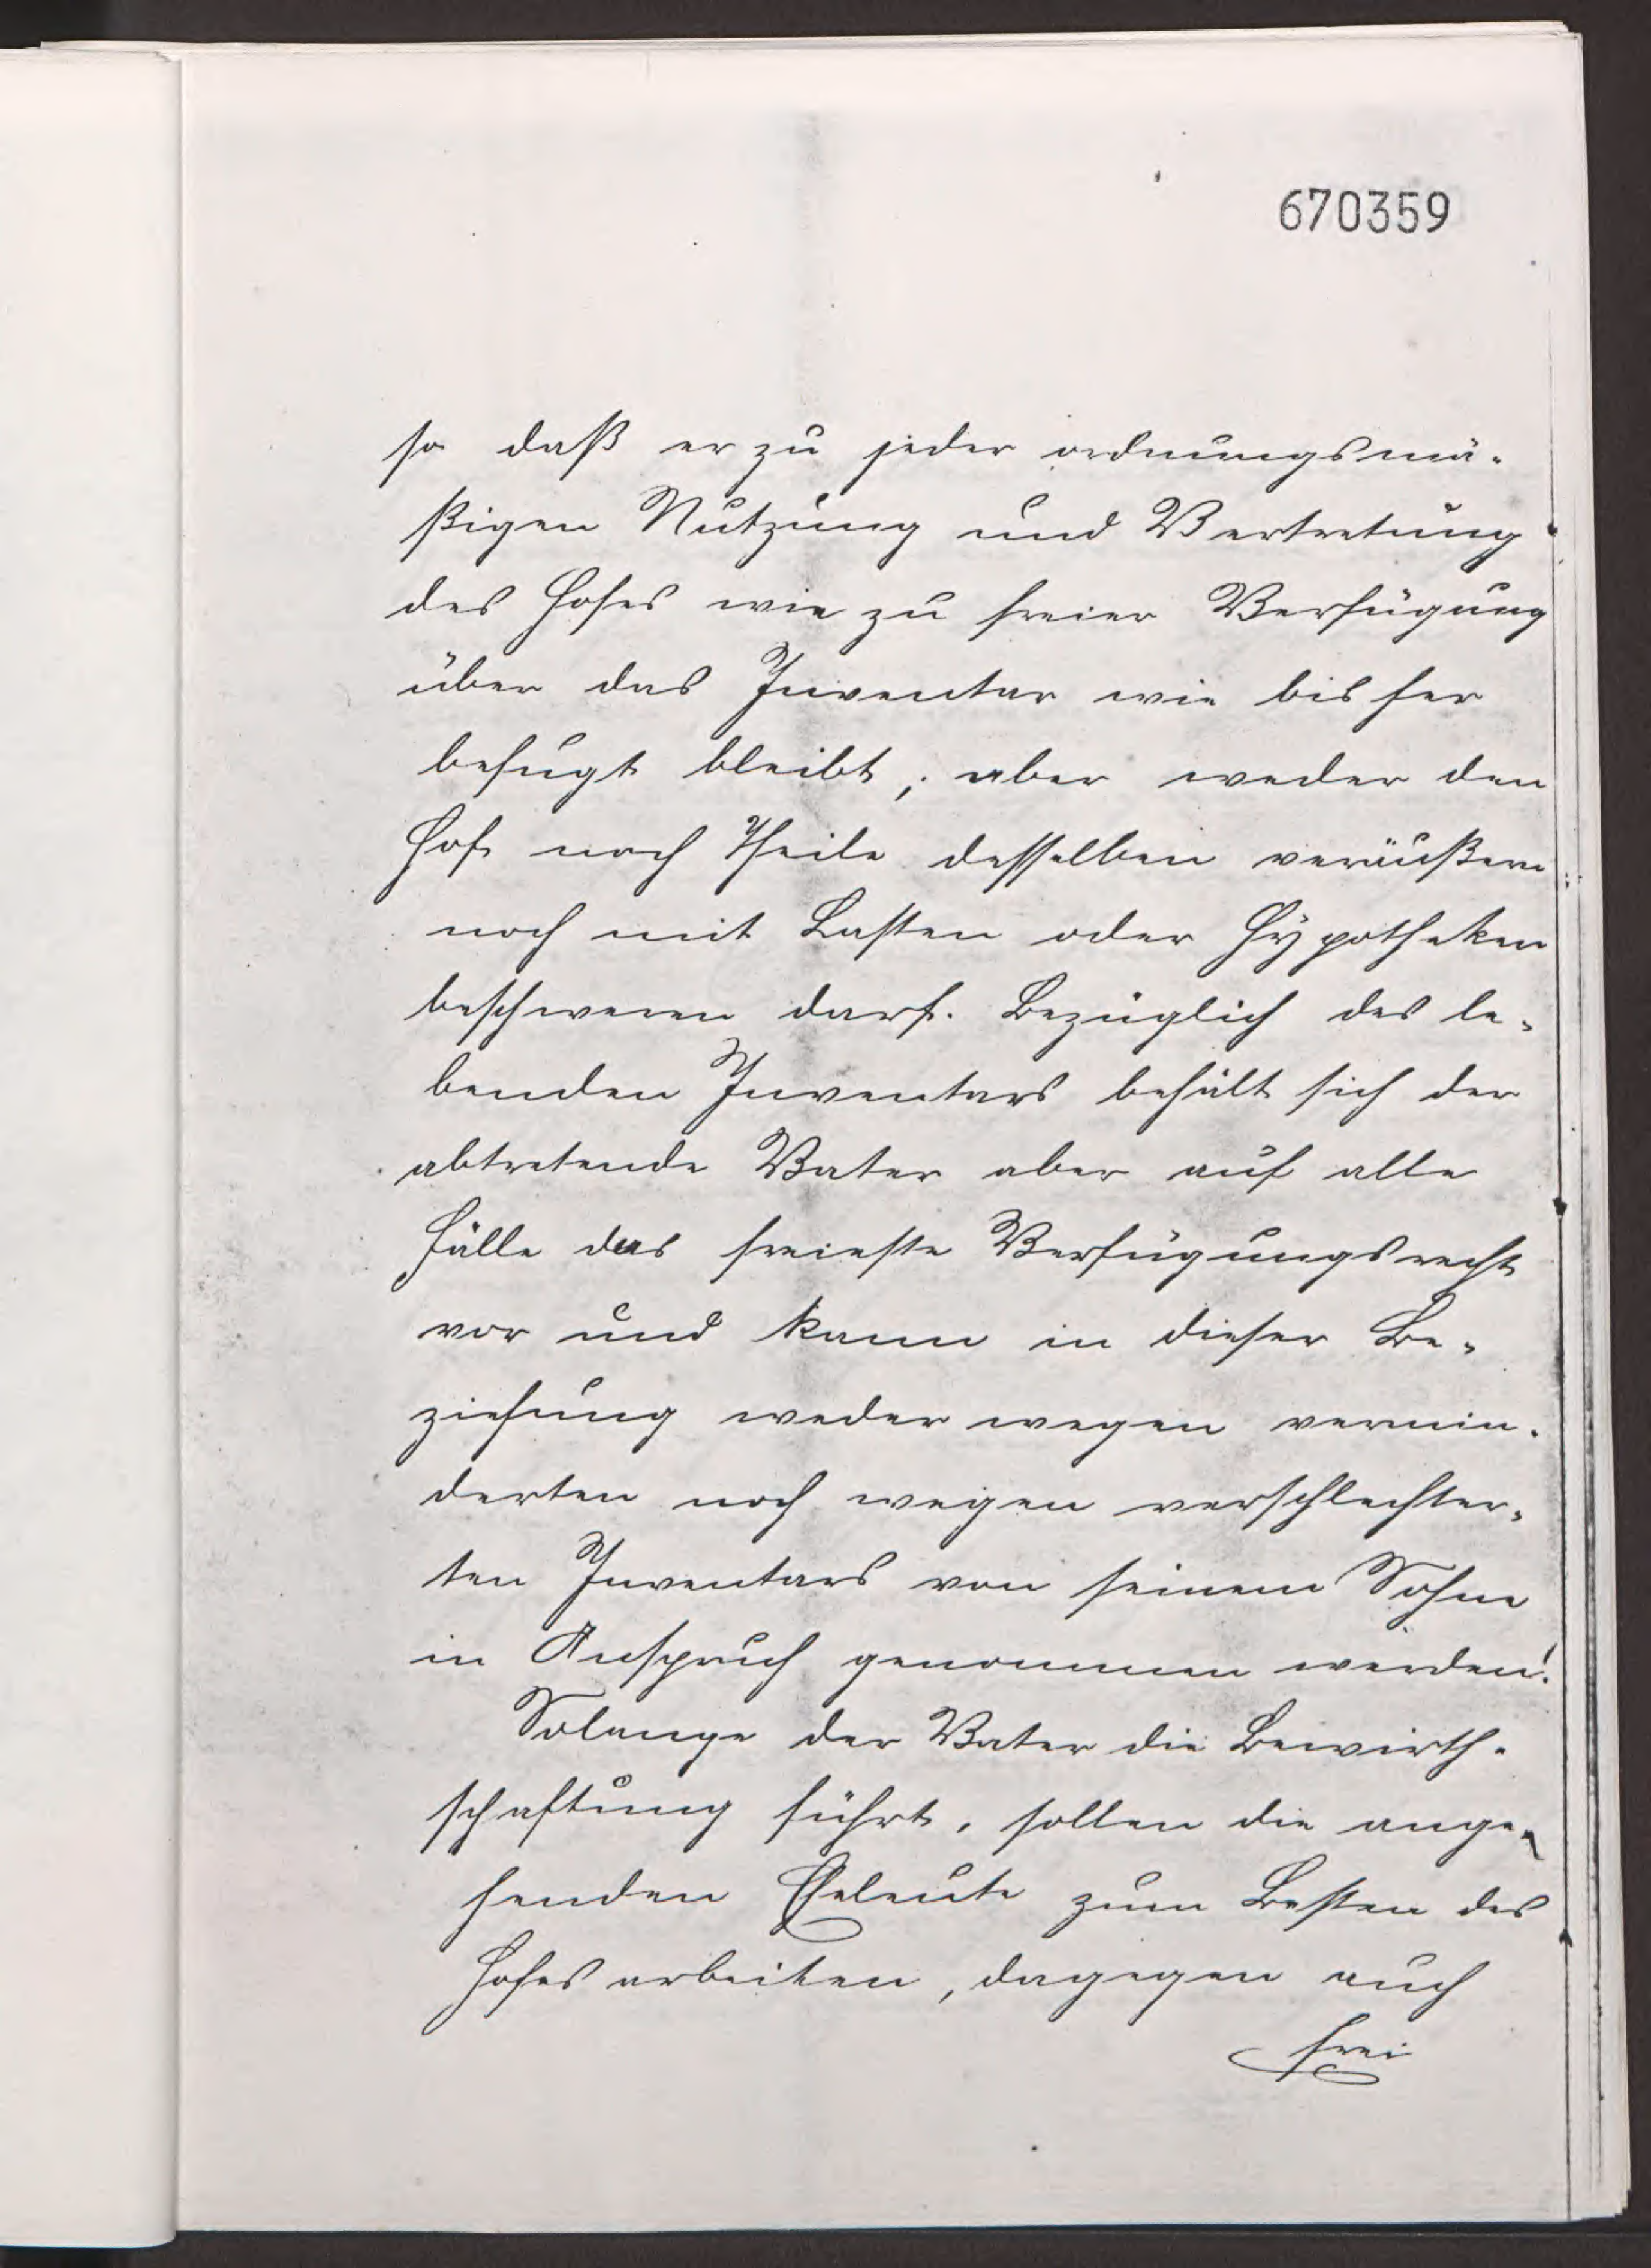 670359
so daß er zu jeder ordnungsmä-
ßigen Nutzung und Vertretung
des Hofes wie zu freier Verfügung
über das Inventar wie bisher
befugt bleibt, aber weder den
Hof noch Theile desselben veräußern
noch mit Lasten oder Hypotheken
beschweren darf. Bezüglich des le-
benden Inventars behält sich der
abtretende Vater aber auf alle
Fälle das freieste Verfügungsrecht
vor und kann in dieser Be-
ziehung weder wegen vermin-
derten noch wegen verschlechter-
ten Inventars von seinem Sohne
in Anspruch genommen werden.
Solange der Vater die Bewirth-
schaftung führt, sollen die ange-
henden Eheleute zum Besten des
Hofes arbeiten, dagegen auch
frei